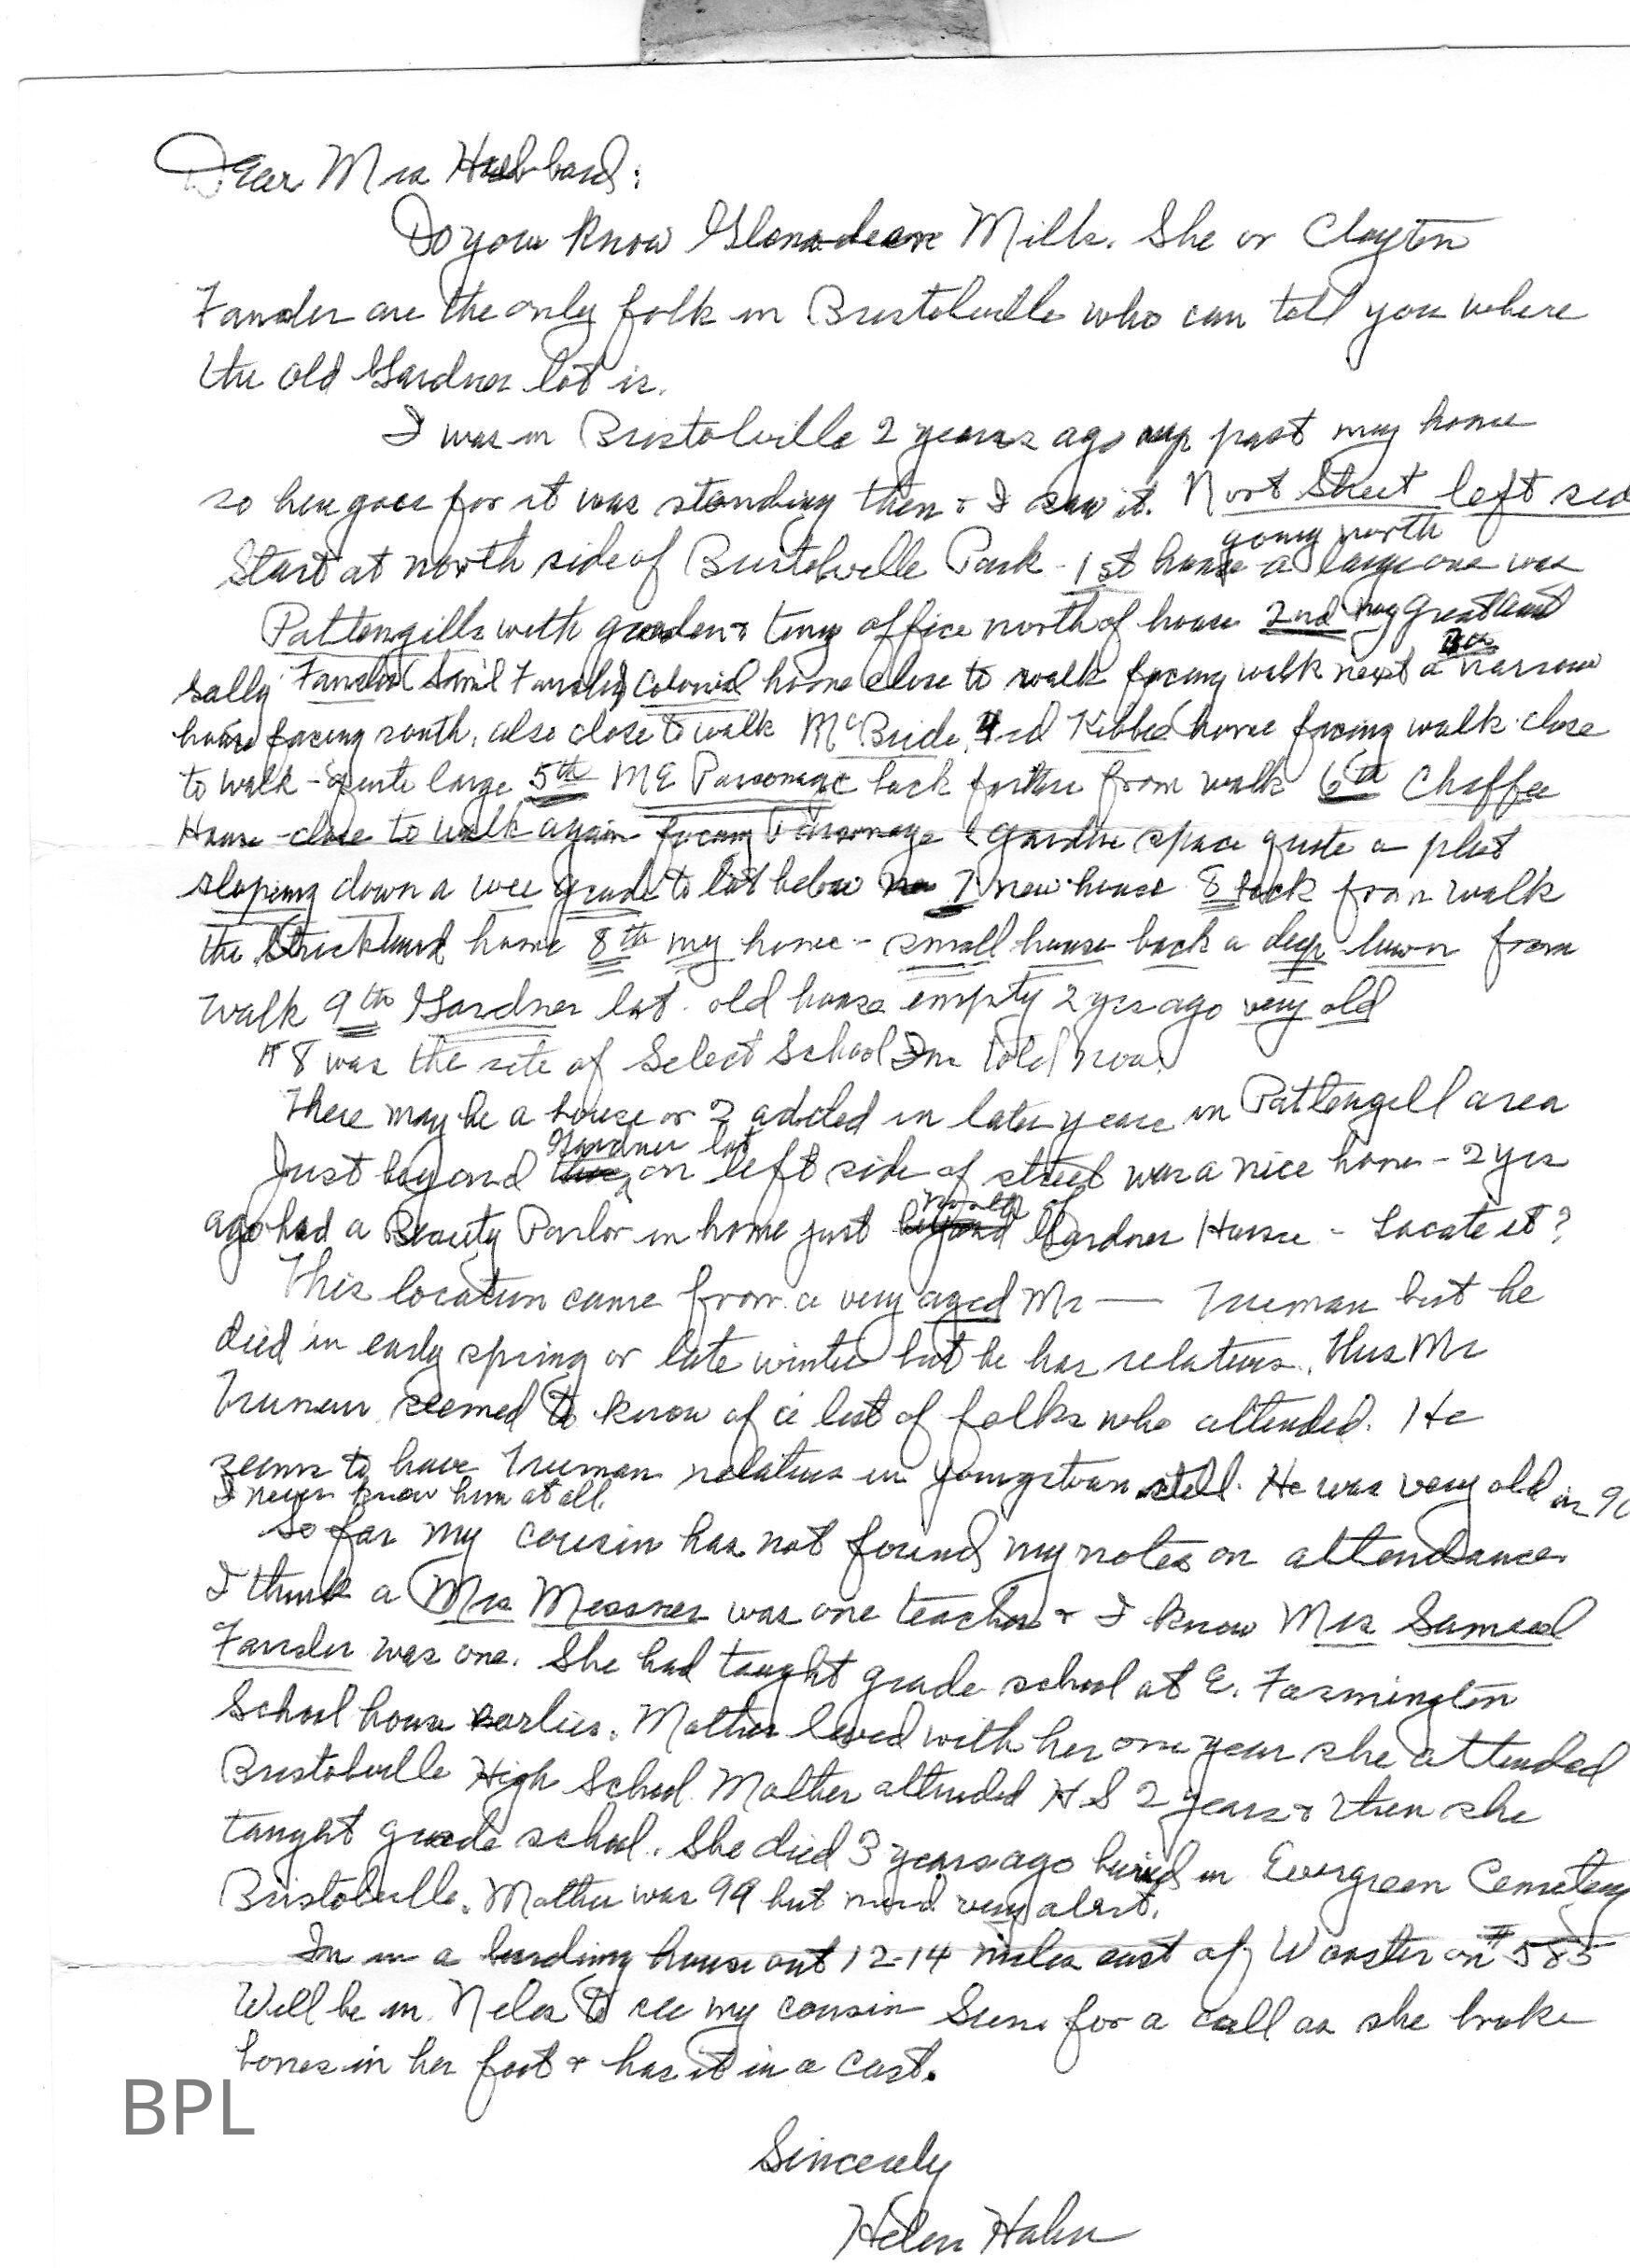 Dear Mrs Hubbard:
Do you know Glenadeane Mills. She or Clayton
Fansler are the only folk in Bristolville who can tell you where
the old Gardner lot is.
I was in Bristolville 2 years ago up past my home
so here goes for it was standing then & I saw it. Nort Street left sid
going north
Start at north side of Bristolville Park - 1st house - a large one was
Pattengills with garden & tiny office north of house 2nd my great aunt
Sally Fansler (Sam'l Fansler) Colonial home close to walk facing walk next a narrow
house facing south, also close to walk McBride. 4rd Kibbee home facing walk close
to walk - quite large 5th ME Parsonage back farther from walk 6th Chaffee
House - close to walk again facing Parsonage & garden space quite a plot
sloping down a wee grade to lot below 7 new house 8 back from walk
the Strickland home 8th my home - small house back a deep lawn from
walk 9th Gardner lot. old house empty 2 yrs ago very old
# 8 was the site of Select School I'm told now.
There may be a house or 2 added in later years in Pattengill area
Gardner lot
Just beyond on left side of street was a nice home - 2 yrs
north of
ago had a Beauty Parlor in home just beyond Gardner House - Locate it?
This location came from a very aged Mr — Truman but he
died in early spring or late winter but he has relatives. This Mr
Truman seemed to know of a list of folks who attended. He
seems to have Truman relatives in Youngstown still. He was very old in 90
I never knew him at all.
So far my cousin has not found my notes on attendance.
I think a Mrs Messner was one teacher & I know Mrs Samuel
Fansler was one. She had taught grade school at E. Farmington
School house earlier. Mother lived with her one year she attended
Bristolville High School. Mother attended H S 2 years & then she
taught grade school. She died 3 years ago buried in Evergreen Cemetery
Bristolville. Mother was 99 but mind very alert.
I'm in a boarding house out 12-14 miles east of Wooster on #585
Will be in Niles to see my cousin soon for a call as she broke
bones in her foot & has it in a cast.
Sincerely
Helen Hahn
BPL